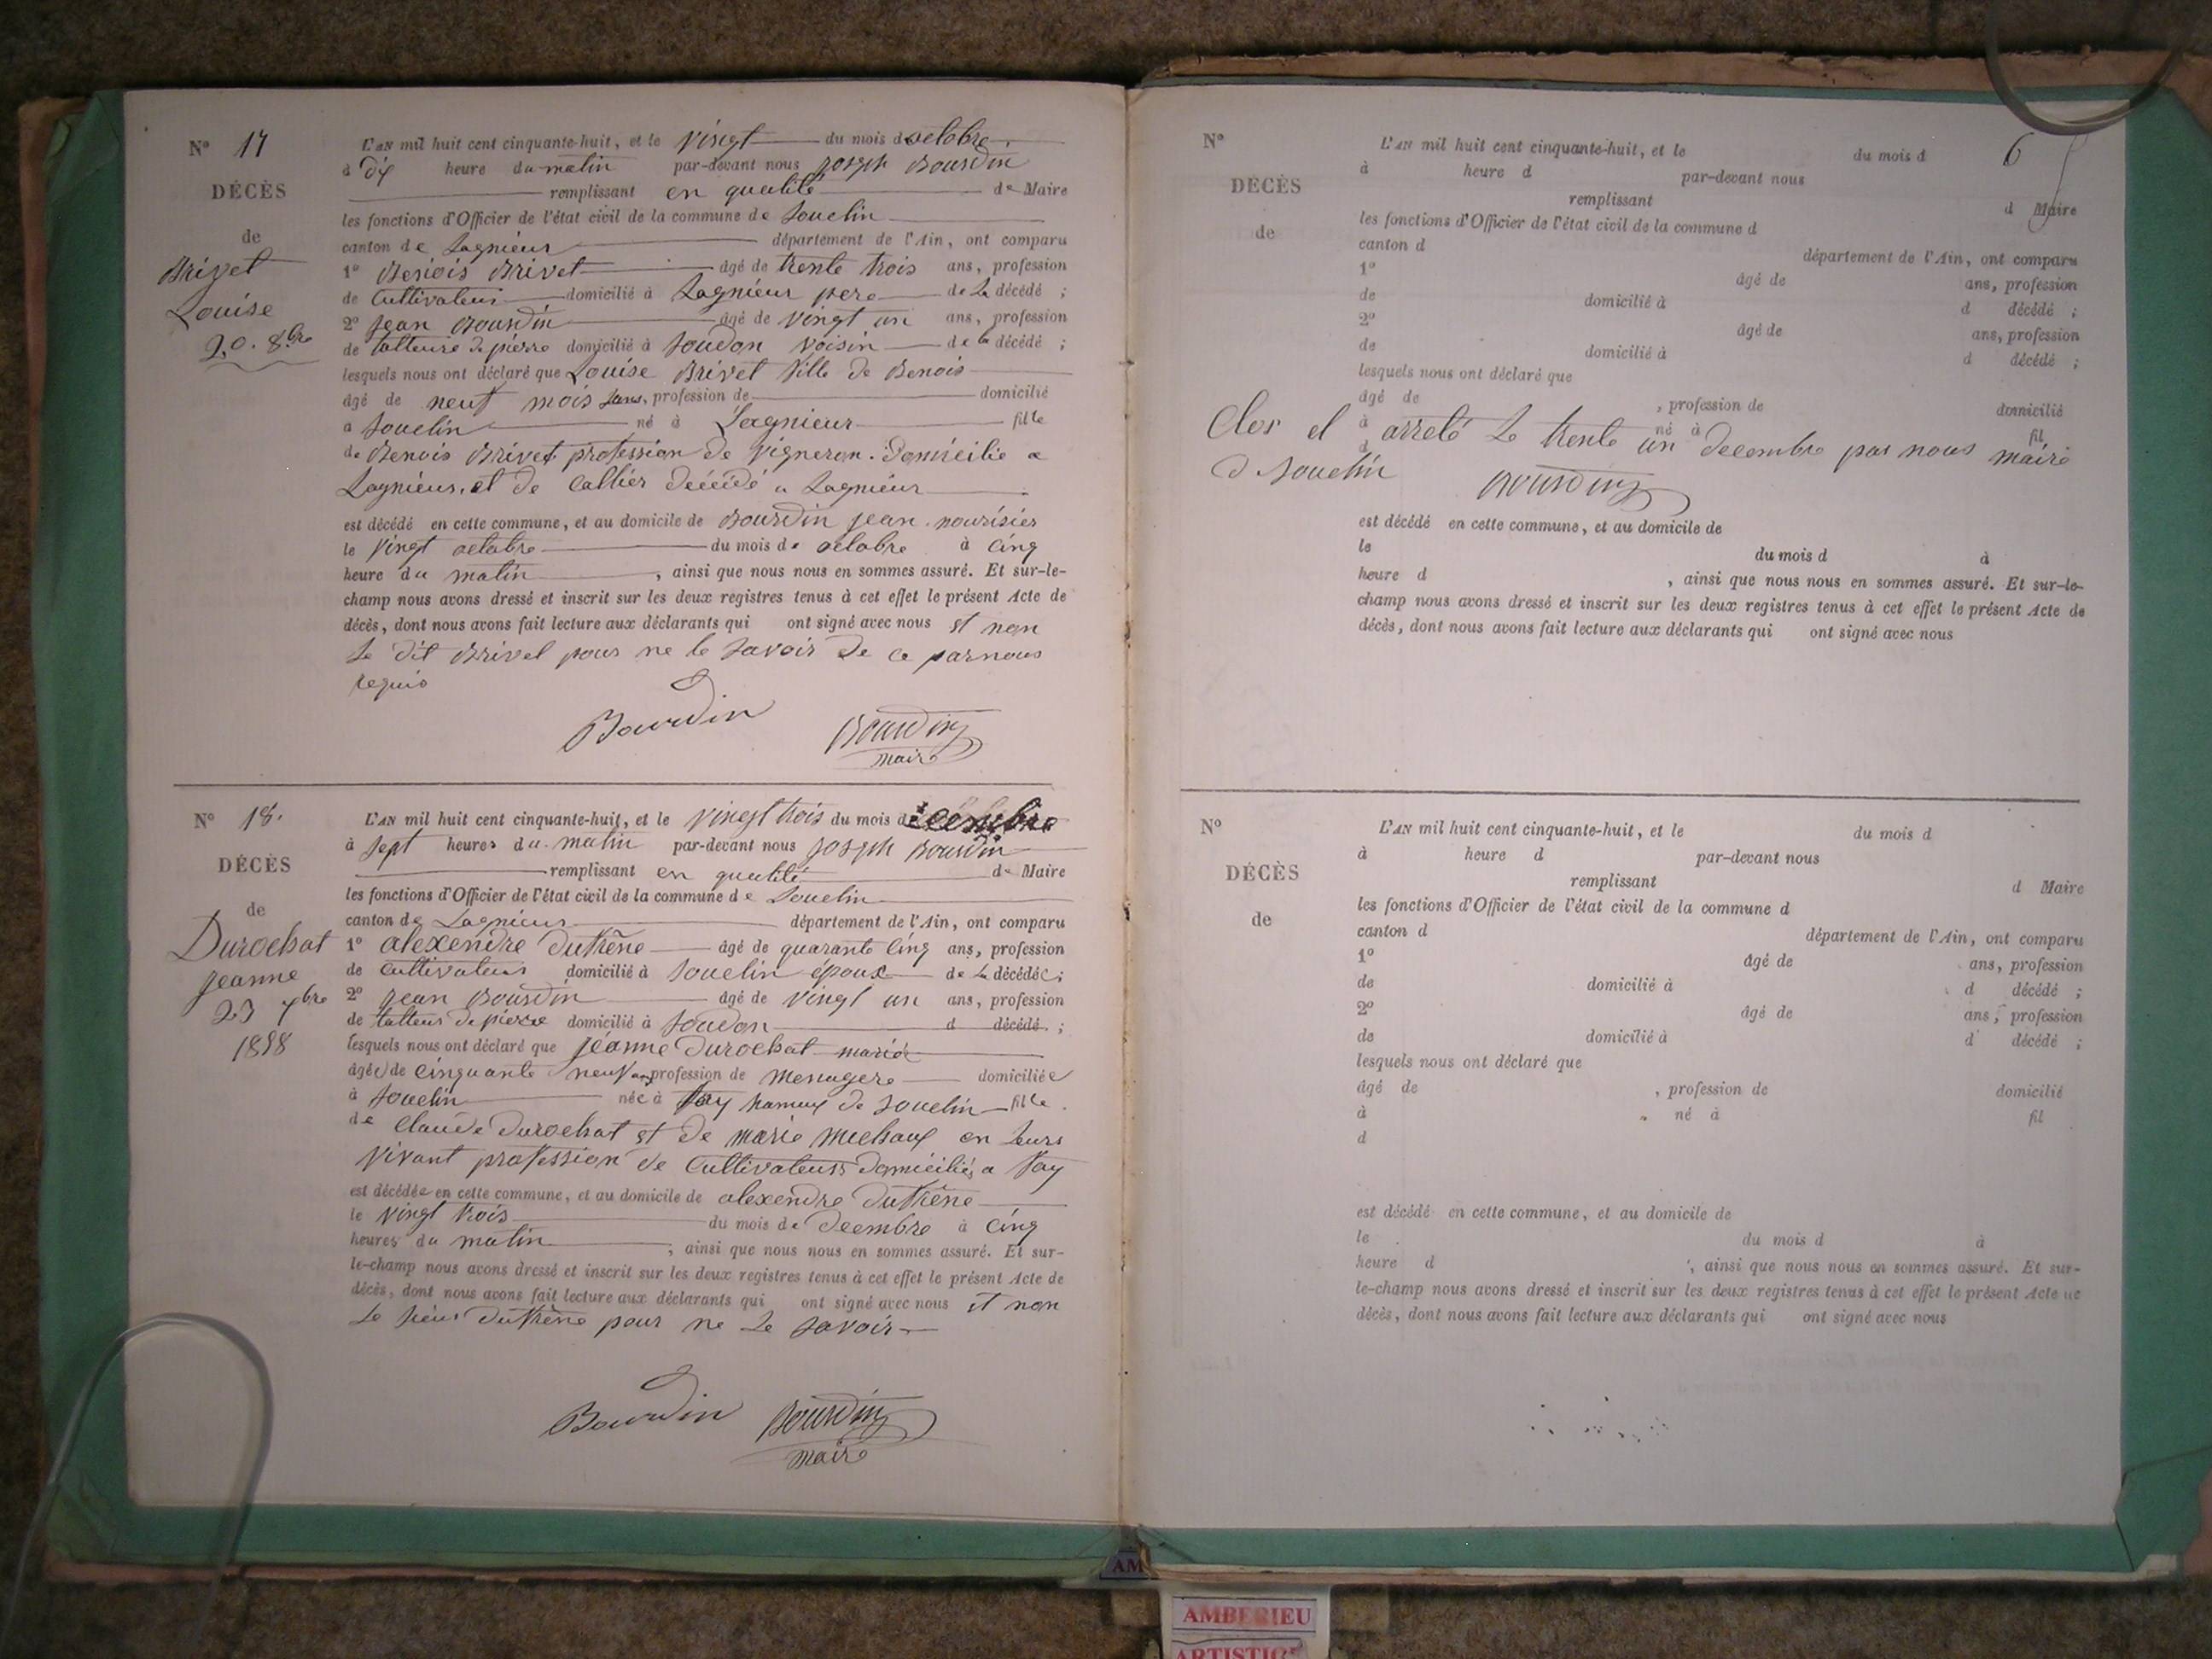 Nº 17
DÉCÈS
de
Brivet
Louise
20. 8.bre
L'AN mil huit cent cinquante-huit, et le vingt du mois d octobre
à dix heure du matin par-devant nous joseph Bourdin
remplissant en qualité de Maire
les fonctions d'Officier de l'état civil de la commune de Souclin
canton de Lagnieur département de l'Ain, ont comparu
1º Benois Brivet âgé de trente trois ans, profession
de Cultivateur domicilié à Lagnieur pere de la décédé ;
2º jean Bourdin âgé de vingt un ans, profession
de talleure de pierre domicilié à Soudon voisin de la décédé ;
lesquels nous ont déclaré que Louise Brivet fille de Benois
âgé de neuf mois ans, profession de domicilié
à Souclin né à Lagnieur fille
de Benois Brivet profession de vigneron. Domicilié a
Lagnieur, et de Callier décédé a Lagnieur
est décédé en cette commune, et au domicile de Bourdin jean nourisier
le vingt octobre du mois de octobre à cinq
heure du matin , ainsi que nous nous en sommes assuré. Et sur-le-
champ nous avons dressé et inscrit sur les deux registres tenus à cet effet le présent Acte de
décès, dont nous avons fait lecture aux déclarants qui ont signé avec nous et non
Le dit Brivet pour ne le savoir de ce par nous
requis
Bourdin Bourdin
maire
Nº 18.
DÉCÈS
de
Durochat
jeanne
23 xbre
1858
L'AN mil huit cent cinquante-huit, et le vingt trois du mois décembre
à sept heures du matin par-devant nous joseph Bourdin
remplissant en qualité de Maire
les fonctions d'Officier de l'état civil de la commune de Souclin
canton de Lagnieur département de l'Ain, ont comparu
1º alexendre Dutrêne âgé de quarante cinq ans, profession
de cultivateur domicilié à Souclin époux de la décédée ;
2º jean Bourdin âgé de vingt un ans, profession
de talleur de pierre domicilié à Soudon d décédé ;
lesquels nous ont déclaré que jéanne Durochat marié
âgée de cinquante neuf ans profession de menagere domiciliée
à Souclin née à fay hameux de Souclin fille
de Claude Durochat et de marie michaux en leurs
vivant profession de Cultivateurs domiciliés a fay
est décédée en cette commune, et au domicile de alexendre Dutrêne
le vingt trois du mois de Decembre à cinq
heures du matin , ainsi que nous nous en sommes assuré. Et sur-
le-champ nous avons dressé et inscrit sur les deux registres tenus à cet effet le présent Acte de
décès, dont nous avons fait lecture aux déclarants qui ont signé avec nous et non
Le sieur Dutrêne pour ne Le savoir
Bourdin Bourdin
maire
Nº
DÉCÈS
de
6
L'AN mil huit cent cinquante-huit, et le du mois d
à heure d par-devant nous
remplissant d Maire
les fonctions d'Officier de l'état civil de la commune d
canton d département de l'Ain, ont comparu
1º âgé de ans, profession
de domicilié à d décédé ;
2º âgé de ans, profession
de domicilié à d décédé ;
lesquels nous ont déclaré que
âgé de , profession de domicilié
à né à fil
d
Clos et arreté Le trente un decembre par nous maire
d Souclin Bourdin
est décédé en cette commune, et au domicile de
le du mois d à
heure d , ainsi que nous nous en sommes assuré. Et sur-le-
champ nous avons dressé et inscrit sur les deux registres tenus à cet effet le présent Acte de
décès, dont nous avons fait lecture aux déclarants qui ont signé avec nous
Nº
DÉCÈS
de
L'AN mil huit cent cinquante-huit, et le du mois d
à heure d par-devant nous
remplissant d Maire
les fonctions d'Officier de l'état civil de la commune d
canton d département de l'Ain, ont comparu
1º âgé de ans, profession
de domicilié à d décédé ;
2º âgé de ans, profession
de domicilié à d décédé ;
lesquels nous ont déclaré que
âgé de , profession de domicilié
à né à fil
d
est décédé en cette commune, et au domicile de
le du mois d à
heure d , ainsi que nous nous en sommes assuré. Et sur-
le-champ nous avons dressé et inscrit sur les deux registres tenus à cet effet le présent Acte de
décès, dont nous avons fait lecture aux déclarants qui ont signé avec nous
AM
AMBERIEU